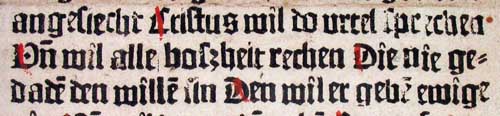 angesiecht Cristus wil do urtel sprechen
Vñ wil alle boszheit rechen Die nie ge=
dadē den willē sin Den wil er gebē ewige